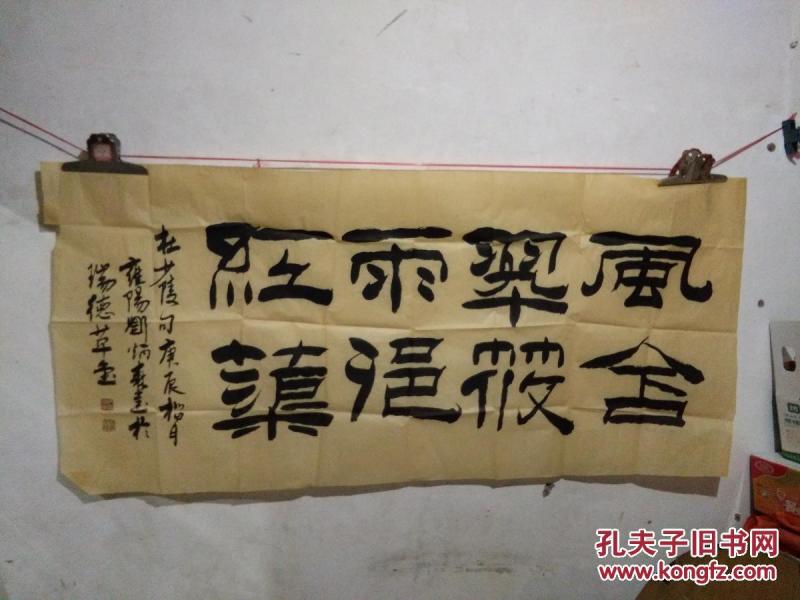 風含
翠筱
雨浥
紅蕖
杜少陵句庚辰榴月
雍陽劉炳森書於
瑞德草堂
孔夫子旧书网
www.kongfz.com